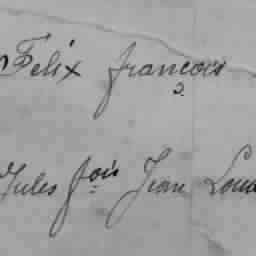 Felix françois
Jules fois Jean Loui